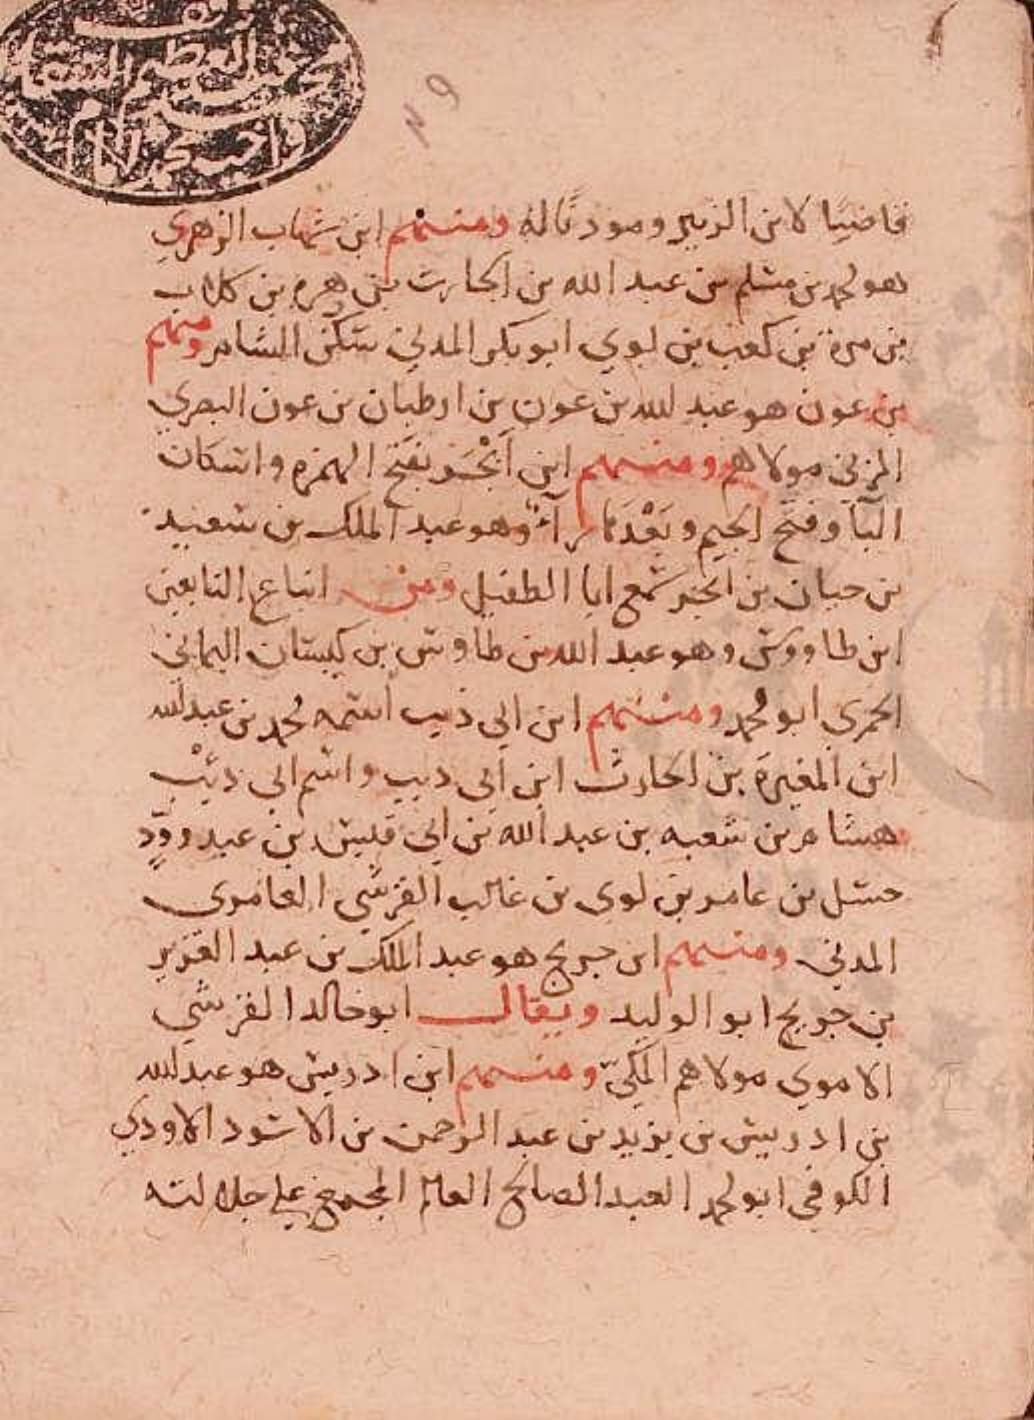 قاضيا لابن الزبير ومودنا له ومنهم ابن شهاب الزهري
هو محمد بن مسلم بن عبد الله بن الحارث بن زهره بن كلاب
بن مرة بن كعب بن لوي ابو بكر المدني سكن الشام ومنهم
بن عون هو عبد الله بن عون بن ارطبان بن عون البصري
المزني مولاهم ومنهم ابن ابجر بفتح الهمزه واسكان
البا وفتح الجيم وبعدها رآء وهو عبد الملك بن سعيد
بن حيان بن ابجر سمع ابا الطفيل ومن اتباع التابعين
ابن طاووس وهو عبد الله بن طاوس بن كيسان اليماني
الحمري ابو محمد ومنهم ابن ابي ذيب اسمه محمد بن عبد الله
ابن المغيرة بن الحارث ابن ابي ديب واسم ابي ديب
هشام بن شعبه بن عبد الله بن ابي قيس بن عبد ود
حسل بن عامر بن لوى بن غالب القرشي العامري
المدني ومنهم ابن جريج هو عبد الملك بن عبد العزيز
بن جريج ابو الوليد ويقال ابو خالد القرشي
الاموي مولاهم المكي ومنهم ابن ادريس هو عبد الله
بن ادريس بن يزيد بن عبد الرحمن بن الاسود الاودي
الكوفي ابو محمد العبد الصالح العالم المجمع على جلالته